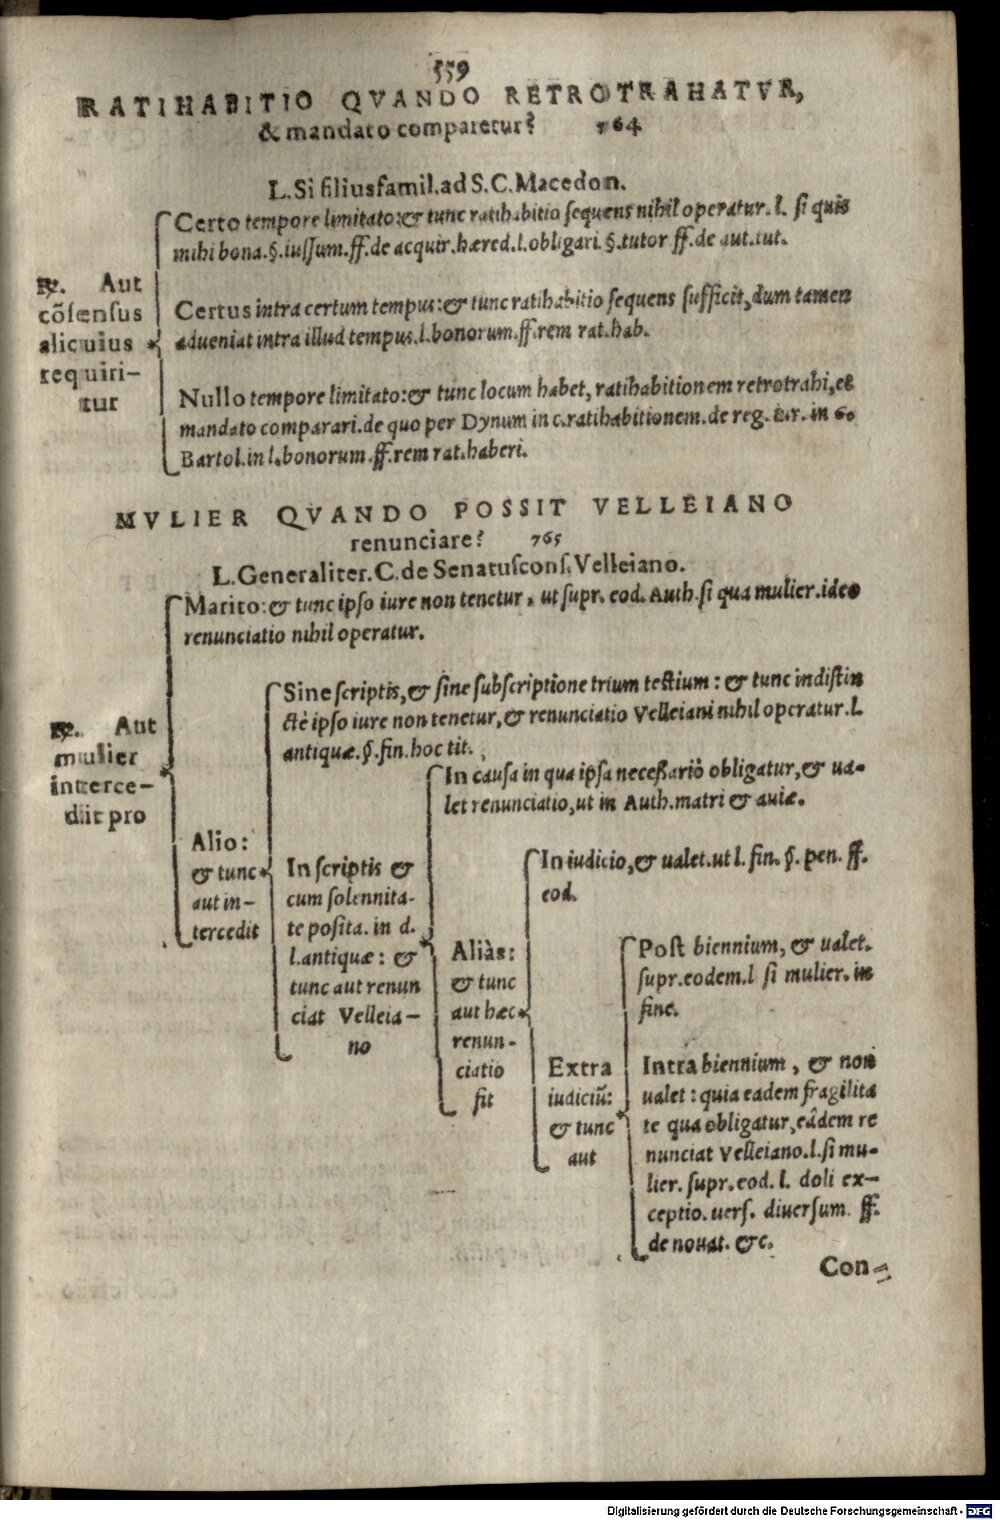 559
RATIHABITIO QVANDO RETROTRAHATVR,
& mandato comparetur? 764
L. Si filiusfamil. ad S. C. Macedon.
℞. Aut
cõsensus
alicuius
requiri-
tur
Certo tempore limitato: & tunc ratihabitio sequens nihil operatur. l. si quis
mihi bona. §. iussum. ff. de acquir. hæred. l. obligari. §. tutor ff. de aut. tut.
Certus intra certum tempus: & tunc ratihabitio sequens sufficit, dum tamen
adueniat intra illud tempus. l. bonorum. ff. rem rat. hab.
Nullo tempore limitato: & tunc locum habet, ratihabitionem retrotrahi, et
mandato comparari. de quo per Dynum in c. ratihabitionem. de reg. iur. in 6.
Bartol. in l. bonorum. ff. rem rat. haberi.
MVLIER QVANDO POSSIT VELLEIANO
renunciare? 765
L. Generaliter. C. de Senatuscons. Velleiano.
℞. Aut
mulier
interce-
dit pro
Marito: & tunc ipso iure non tenetur, ut supr. eod. Auth. si qua mulier. ideo
renunciatio nihil operatur.
Alio:
& tunc
aut in-
tercedit
Sine scriptis, & sine subscriptione trium testium: & tunc indistin
ctè ipso iure non tenetur, & renunciatio Velleiani nihil operatur. l.
antiquæ. §. fin. hoc tit.
In scriptis &
cum solennita-
te posita. in d.
l. antiquæ: &
tunc aut renun
ciat Velleia-
no
In causa in qua ipsa necessariò obligatur, & ua-
let renunciatio, ut in Auth. matri & auiæ.
Aliàs:
& tunc
aut hæc
renun-
ciatio
fit
In iudicio, & ualet. ut l. fin. §. pen. ff.
eod.
Extra
iudiciũ:
& tunc
aut
Post biennium, & ualet.
supr. eodem. l si mulier. in
fine.
Intra biennium, & non
ualet: quia eadem fragilita
te qua obligatur, eâdem re
nunciat Velleiano. l. si mu-
lier. supr. eod. l. doli ex-
ceptio. uers. diuersum. ff.
de nouat. &c.
Con-
Digitalisierung gefördert durch die Deutsche Forschungsgemeinschaft - DFG